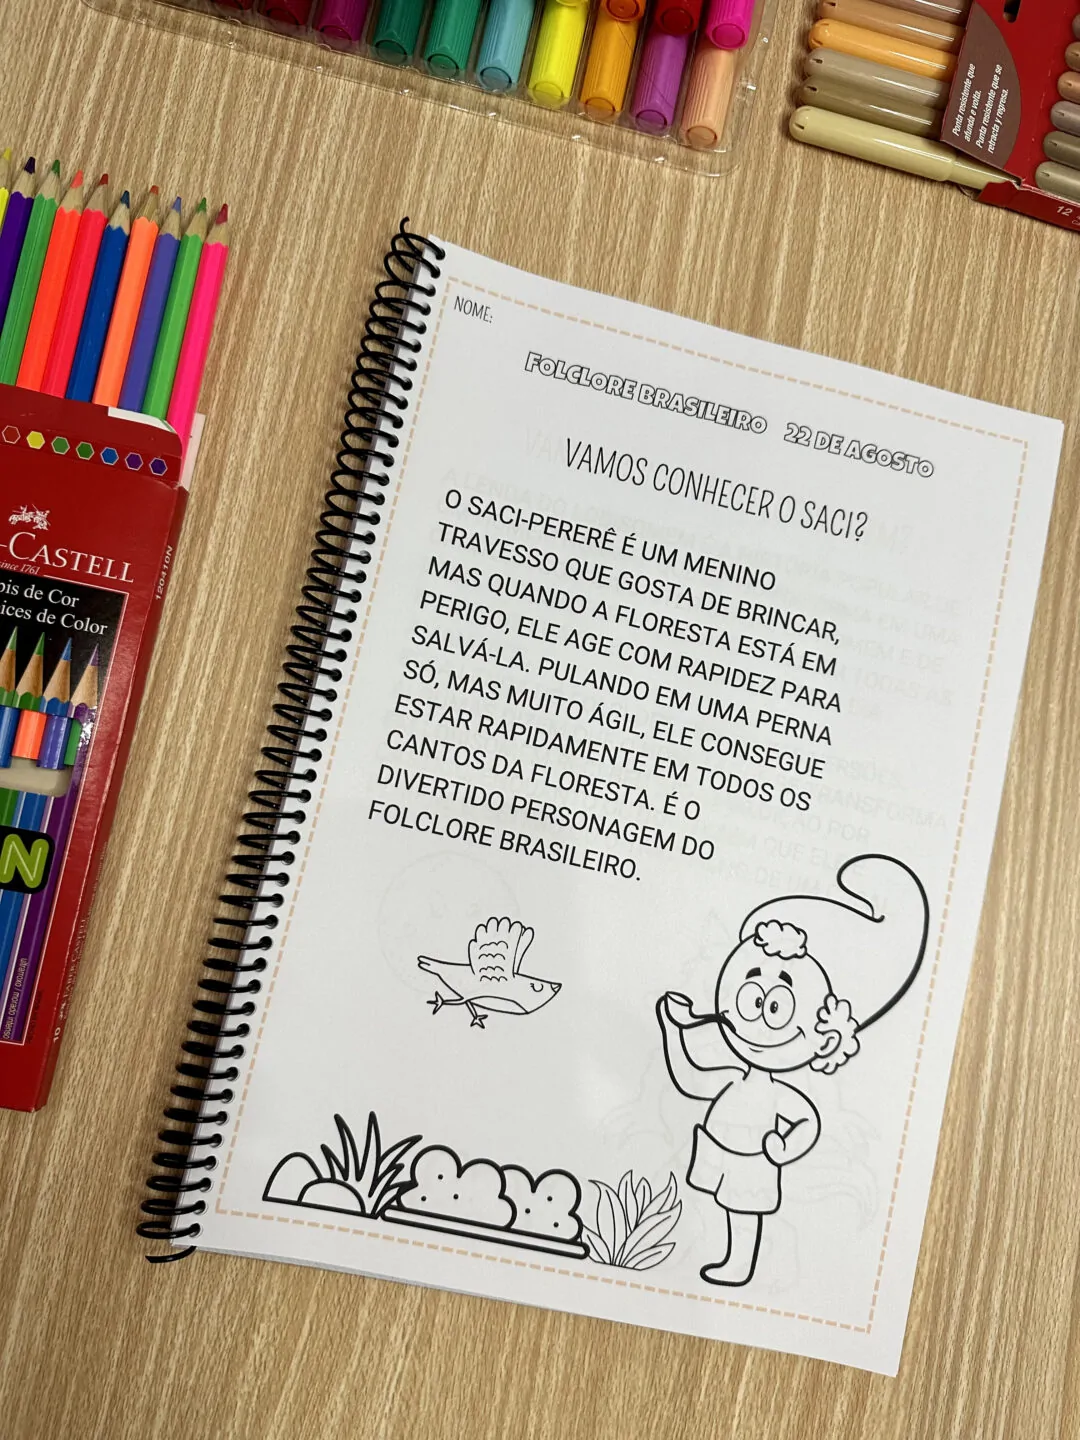 Ponta resistente que
afunda e volta.
Punta resistente que se
retracta y regresa.
12
NOME:
FOLCLORE BRASILEIRO 22 DE AGOSTO
VAMOS CONHECER O SACI?
O SACI-PERERÊ É UM MENINO
TRAVESSO QUE GOSTA DE BRINCAR,
MAS QUANDO A FLORESTA ESTÁ EM
PERIGO, ELE AGE COM RAPIDEZ PARA
SALVÁ-LA. PULANDO EM UMA PERNA
SÓ, MAS MUITO ÁGIL, ELE CONSEGUE
ESTAR RAPIDAMENTE EM TODOS OS
CANTOS DA FLORESTA. É O
DIVERTIDO PERSONAGEM DO
FOLCLORE BRASILEIRO.
-CASTELL
since 1761
pis de Cor
ices de Color
120410N
N
ultrarroxo / morado intenso